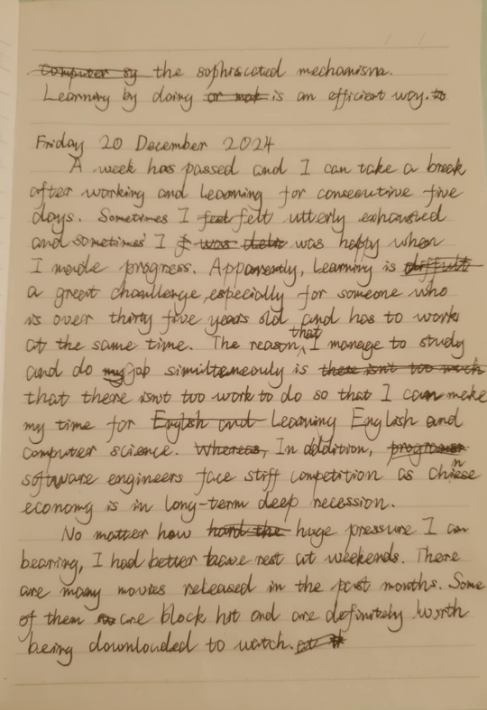 ~~computer sy~~ the sophiscated mechanism.
Learning by doing ~~or not~~ is an efficient way. ~~to~~
Friday 20 December 2024
A week has passed and I can take a break
after working and learning for consecutive five
days. Sometimes I ~~feel~~ felt utterly exhausted
and sometimes I ~~was~~ was happy when
I made progress. Apparently, Learning is ~~difficult~~
a great challenge, especially for someone who
is over thirty five years old and has to work
at the same time. The reason that I manage to study
and do my job similteneously is ~~there isn't too much~~
that there isn't too work to do so that I can make
my time for ~~English and~~ Learning English and
computer science. ~~Whereas,~~ In addition,
software engineers face stiff competition as chinese
economy is in long-term deep recession.
No matter how ~~hard the~~ huge pressure I am
bearing, I had better have rest at weekends. There
are many movies released in the past months. Some
of them are block hit and are definitely worth
being downloaded to watch.